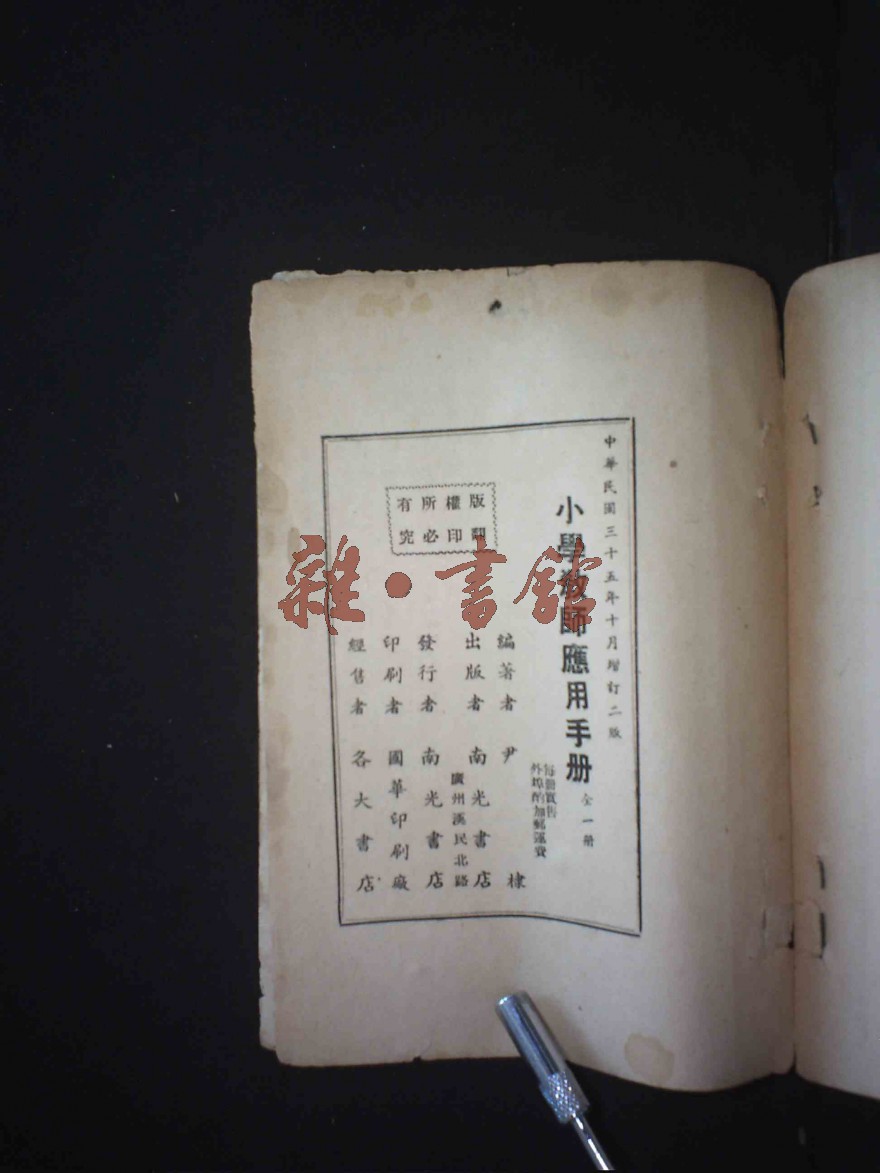 中華民國三十五年十月增訂二版
小學教師應用手册 全一册
每冊實售
外埠酌加郵運費
編著者 尹棣
出版者 南光書店
廣州漢民北路
發行者 南光書店
印刷者 國華印刷廠
經售者 各大書店
版權所有
翻印必究
雜·書館